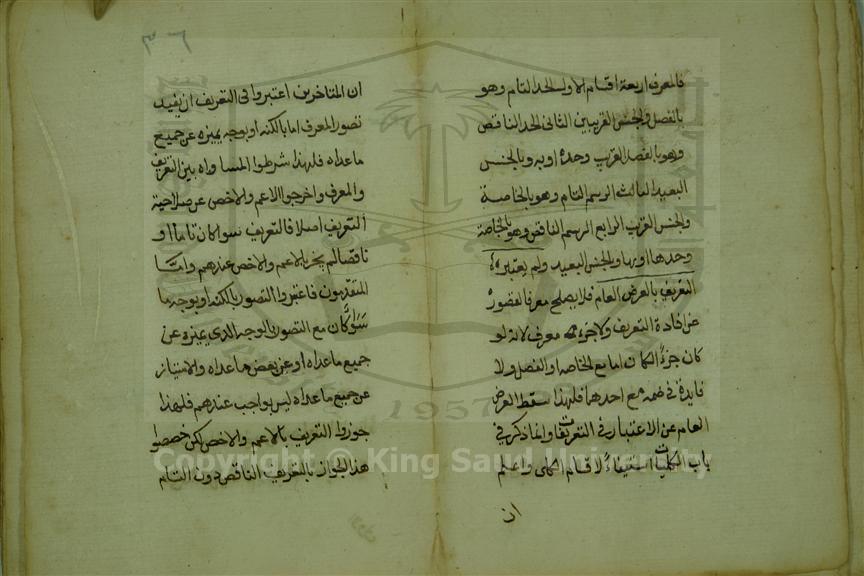 فالمعرف اربعة اقسام الاول الحد التام وهو
بالفصل والجنس القريبين الثاني الحد الناقص
وهو بالفصل القريب وحده او به وبالجنس
البعيد الثالث الرسم التام وهو بالخاصة
والجنس القريب الرابع الرسم الناقص وهو بالخاصة
وحدها او بها وبالجنس البعيد ولم يعتبروا
التعريف بالعرض العام فلا يصلح معرفا لقصوره
عن افادة التعريف ولا جزء معرف لانه لو
كان جزءً لكان اما مع الخاصة او الفصل ولا
فايدة في ضمه مع احدهما فلهذا سقط العرض
العام عن الاعتبار في التعريفات وانما ذكر في
باب الكليات استيفاءً لاقسام الكلى واعلم
ان
٣٦
ان المتاخرين اعتبروا في التعريف ان يفيد
تصور المعرف اما بالكنه او بوجه يميزه عن جميع
ما عداه فلهذا شرطوا المساواه بين التعريف
والمعرف واخرجوا الاعم والاخص عن صلاحية
التعريف اصلا فالتعريف سوا كان تاما او
ناقصا لم يجز بالاعم والاخص عندهم واما
المتقدمون فاعتبروا التصور بالكنه او بوجه ما
سَوا كان مع التصور بالوجه الذي يميزه عن
جميع ما عداه او عن بعض ما عداه والامتياز
عن جميع ما عداه ليس بواجب عندهم فلهذا
جوزوا التعريف بالاعم والاخص لكن خصصوا
هذا الجواز بالتعريف الناقص دون التام
Copyright © King Saud University
1957